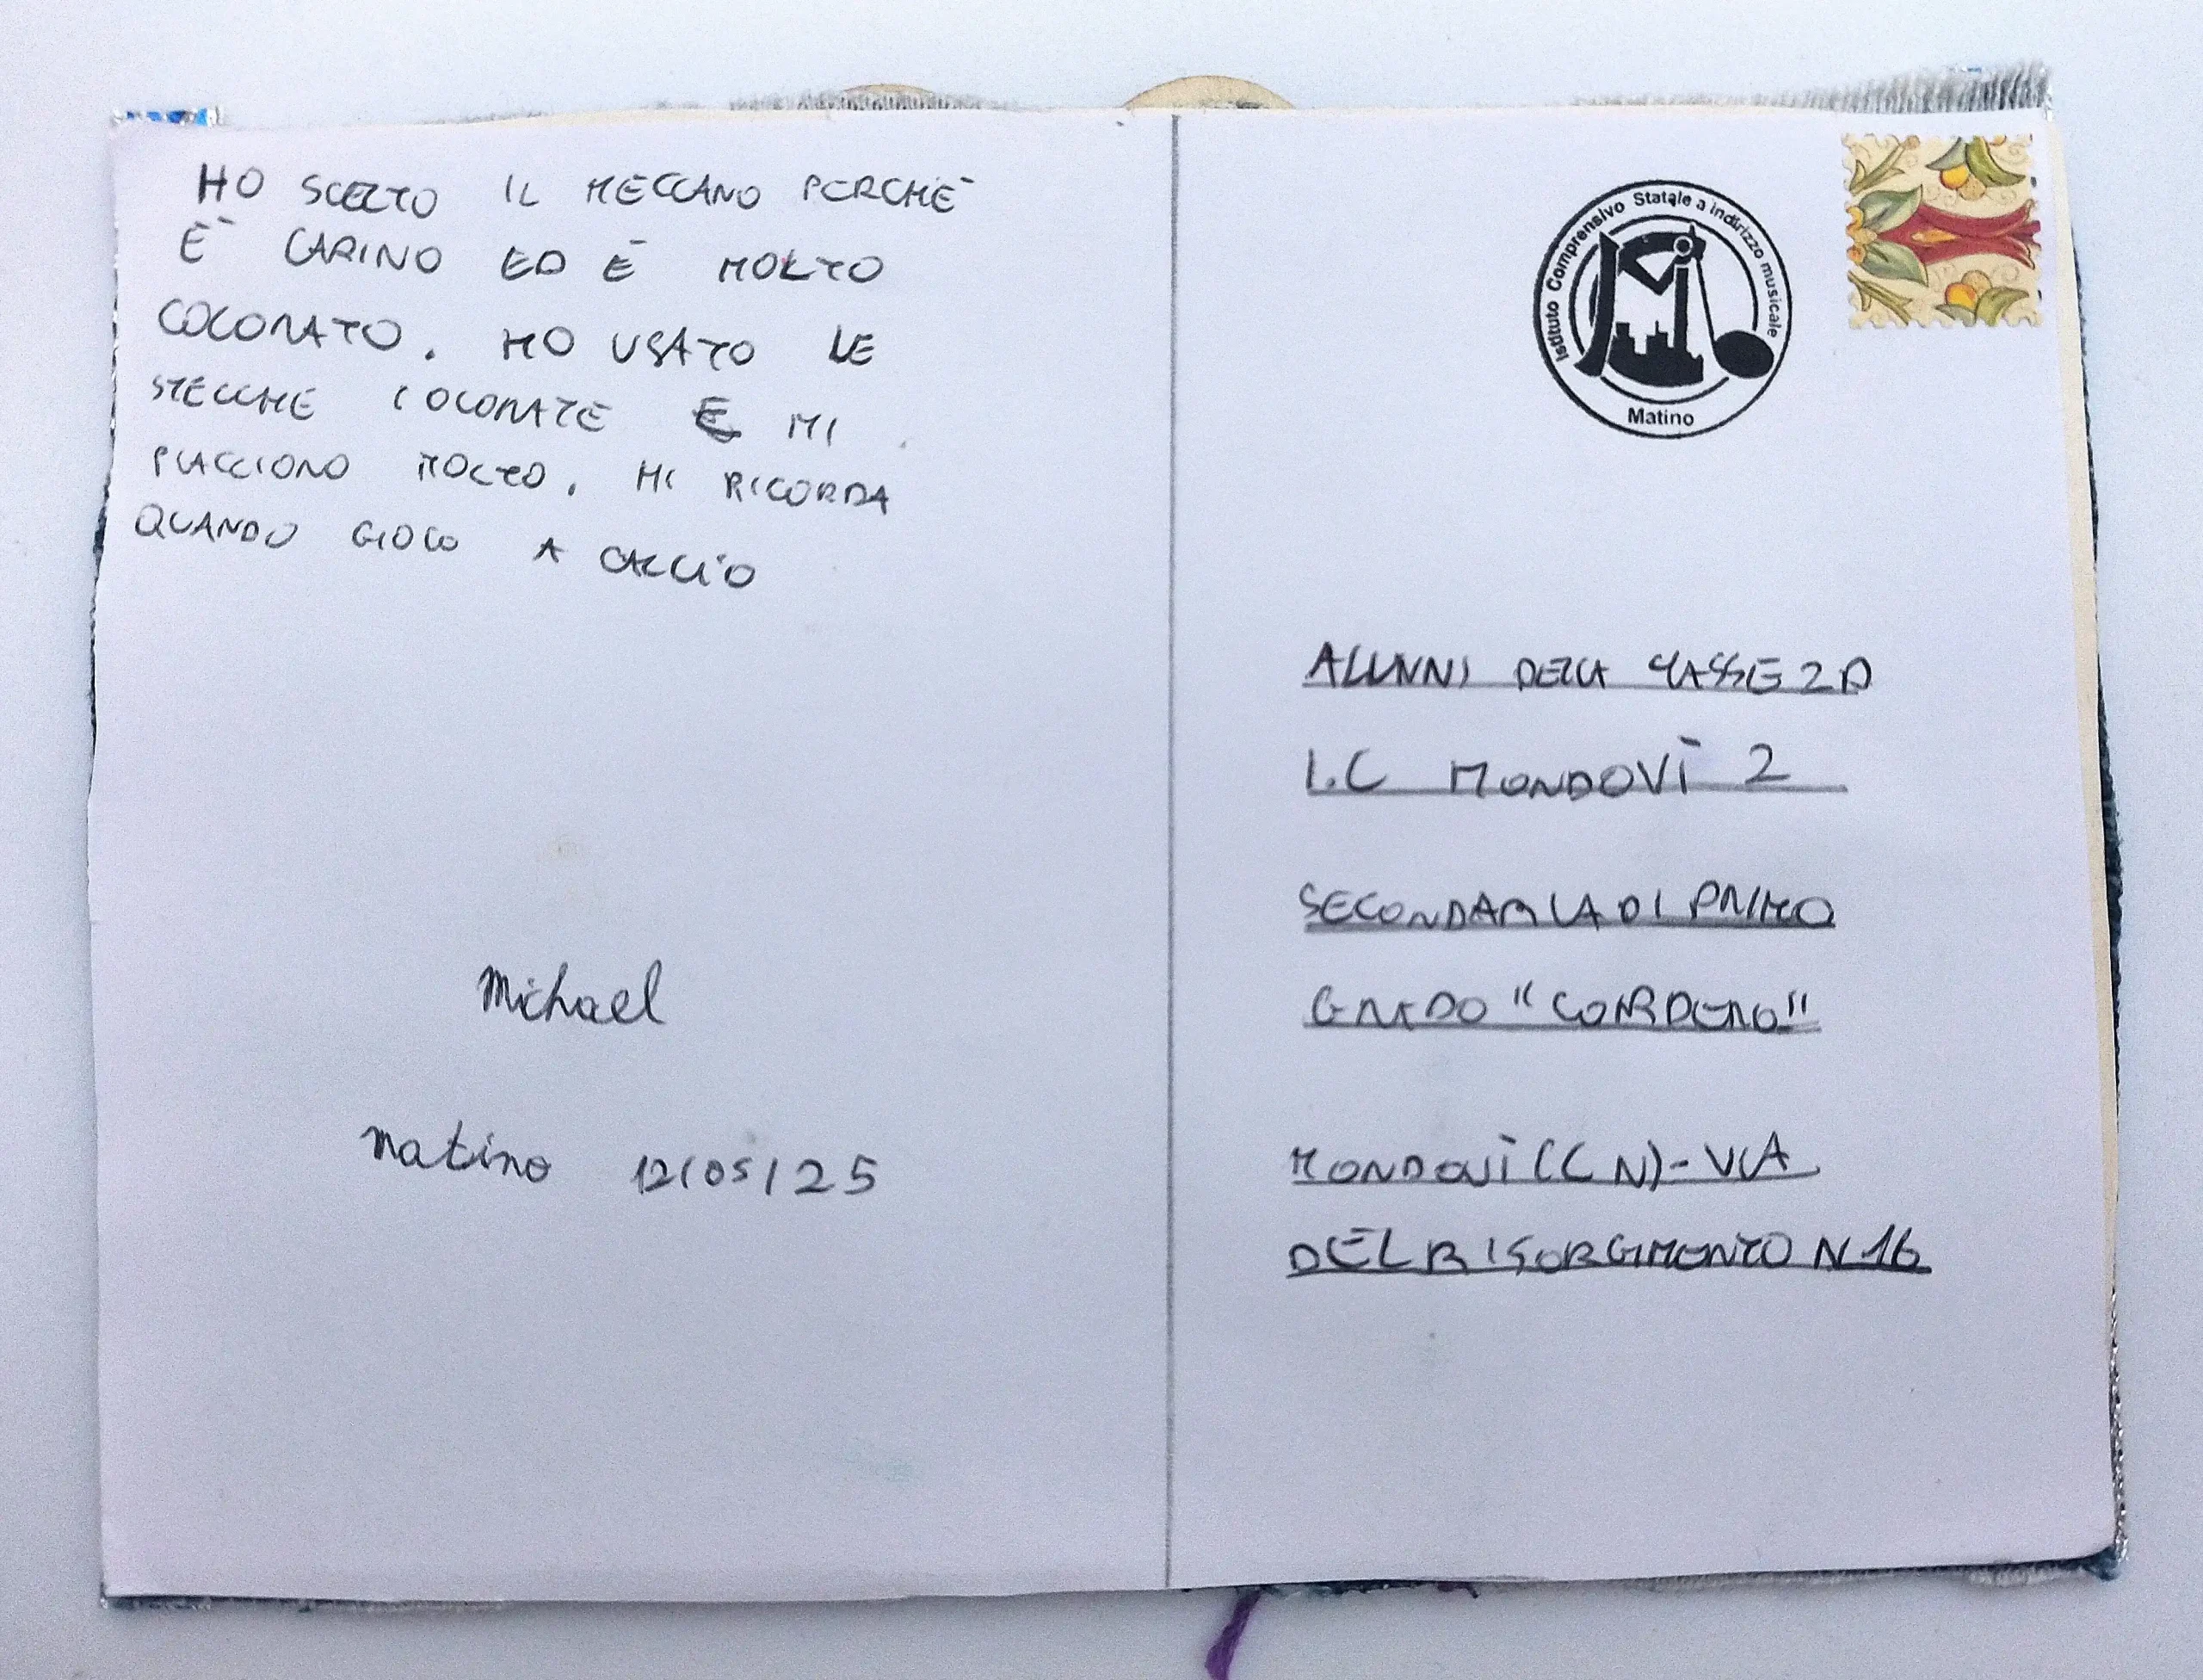 HO SCELTO IL MECCANO PERCHÈ
È CARINO ED È MOLTO
COLORATO. HO USATO LE
STECCHE COLORATE E MI
PIACCIONO MOLTO. MI RICORDA
QUANDO GIOCO A CALCIO
Michael
Matino 12/05/25
Istituto Comprensivo Statale a indirizzo musicale
Matino
ALUNNI DELLA CLASSE 2D
I.C MONDOVÌ 2
SECONDARIA DI PRIMO
GRADO "CORDERO"
MONDOVÌ (CN)-VIA
DEL RISORGIMENTO N 16